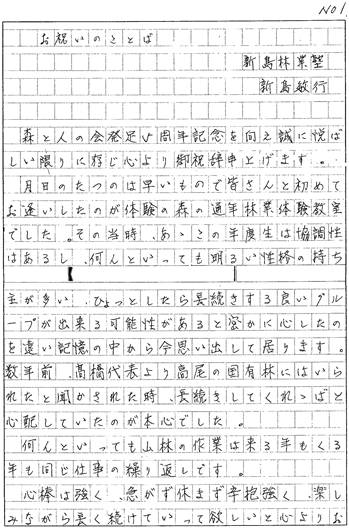 NO1
お祝いのことば
新島林業塾
新島敏行
森と人の会発足15周年記念を向え誠に悦ば
しい限りに存じ心より御祝辞申上げます。
月日のたつのは早いもので皆さんと初めて
お逢いしたのが体験の森の通年林業体験教室
でした。その当時、あゝこの年度生は協調性
はあるし、何んといっても明るい性格の持ち
主が多い、ひょっとしたら長続きする良いグル
ープが出来る可能性があると密かに心したの
を遠い記憶の中から今思い出して居ります。
数年前、高橋代表より高尾の国有林にはいら
れたと聞かされた時、長続きしてくれっばと
心配していたのが本心でした。
何んといっても山林の作業は来る年もくる
年も同じ仕事の繰り返しです。
心棒は強く、急がず休まず辛抱強く、楽し
みながら長く続けていって欲しいと心よりお